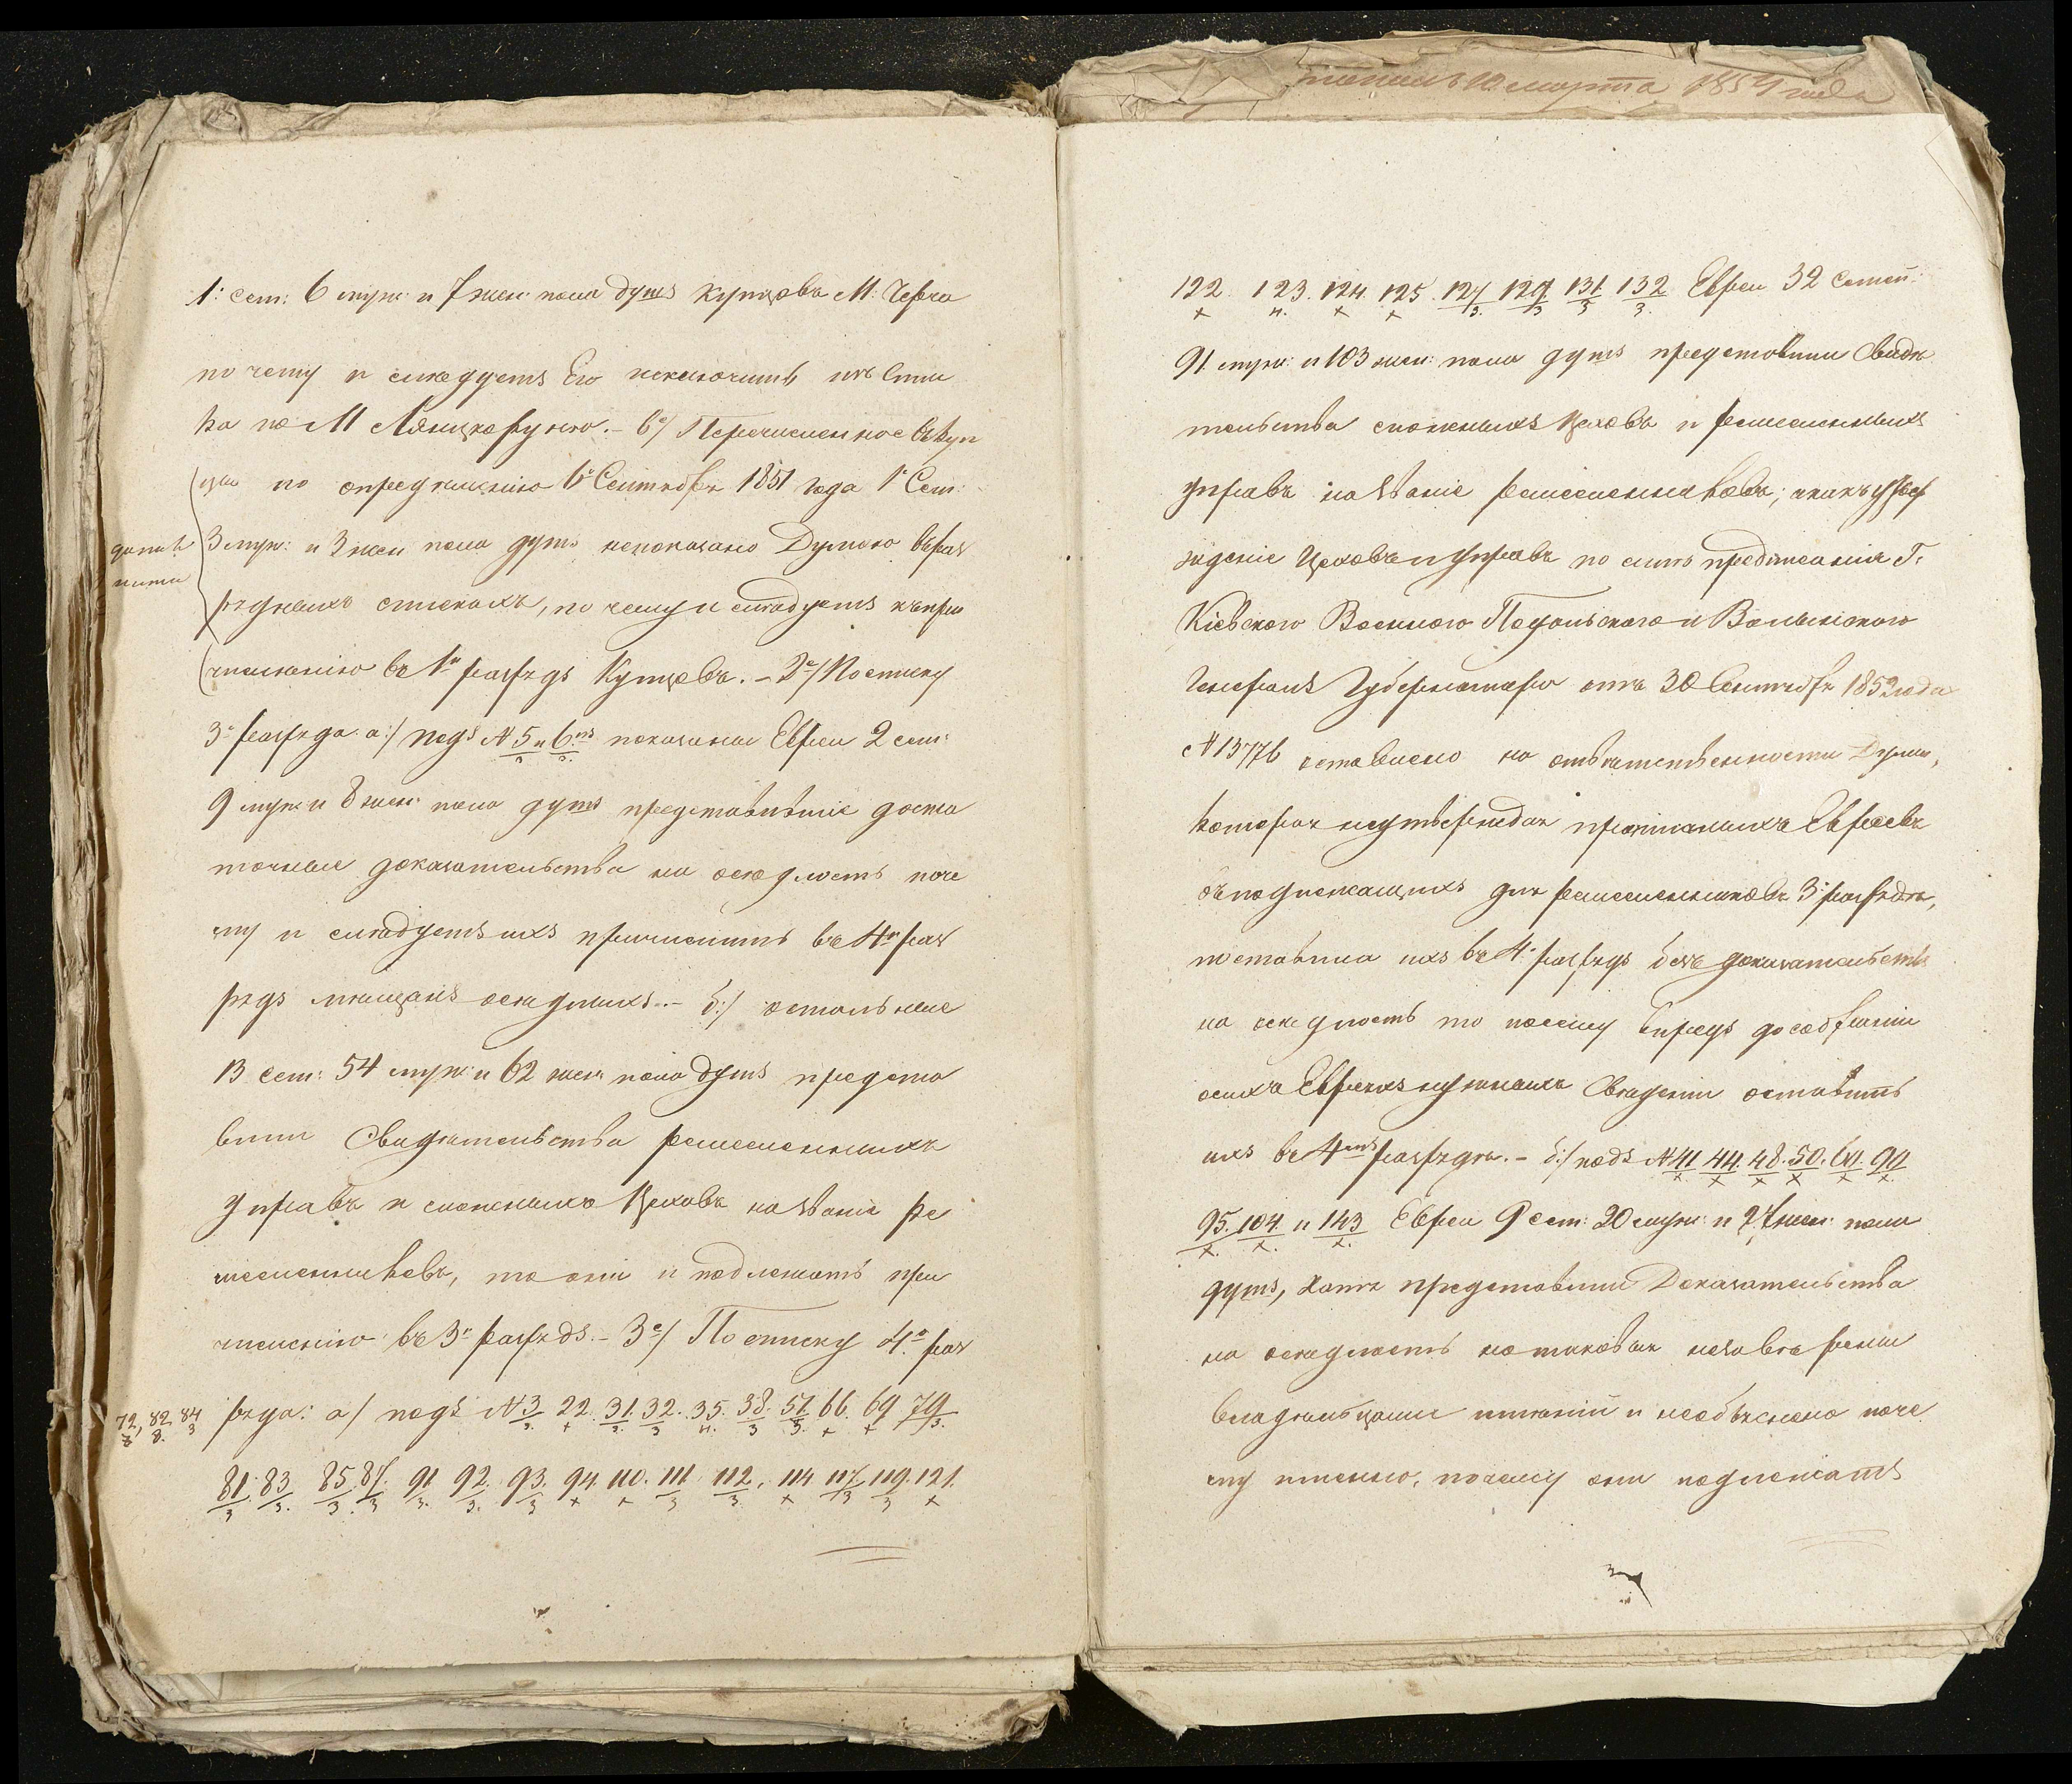 1: сем: 6 муж: и 7 жен: пола душъ купцовъ М: Чер
по чему и слѣдуетъ Его исключить изъ спи
ка по М Ляницкоруню. – в./ Перечисленное въ куп
цы по опредѣленію 6: Сентября 1851 года 1: Сем:
3 муж: и 3 жен пола душъ непоказано Думою въ раз
рядныхъ спискахъ, по чему и слѣдуетъ къ при
численію въ 1й разрядъ Купцовъ. – 2е/ По списку
3: разряда: а:/ подъ № 5 и 6мъ показаны Евреи 2 сем:
9 муж: и 8 жен: пола душъ представившіе доста
точные доказательства на осѣдлость поче
му и слѣдуетъ ихъ причислить въ 4й раз
рядъ мѣщанъ осѣдлыхъ. – б:/ остальные
13 сем: 54 муж: и 62 жен: пола душъ предста
вили Свидѣтельства ремесленныхъ
Управъ и сложеныхъ Цеховъ на званіе ре
месленниковъ, то они и подлежатъ при
численію въ 3й разрядъ. – 3е/ По списку 4го раз
72, 82 84
3 8. 3
ряда: а/ подъ № 3 22. 31. 32. 35. 38. 51. 66. 69 79
81. 83 85. 87. 91. 92. 93. 94. 110. 111 112. 114 117. 119. 121.
122. 123. 124. 125. 127 129. 131. 132 Евреи 32 Семей:
91 муж: и 103 жен: пола душъ представили Свидѣ
тельства сложеныхъ Цеховъ и ремесленныхъ
управъ на званіе ремесленниковъ; но какъ учреж
жденіе Цеховъ и Управъ по силѣ предписанія Г.
Кіевского Военного Подольского и Волынского
Генералъ Губернатора отъ 30 Сентября 1852 года
№ 13776 оставлено на отвѣтственности Думы,
которая неутверждая прописанныхъ Евреевъ
подлежащихъ для ремесленниковъ 3: разряда,
поставила ихъ въ 4: разрядъ безъ доказательствъ
на осѣдлость то посему впредь до собранія
осихъ Евреяхъ нужныхъ Свѣденіи оставить
ихъ въ 4мъ разрядѣ. – б:/ подъ № 41 44. 48. 50. 61. 90
95. 104. и 143 Евреи 9 сем: 20 муж: и 27 жен: пола
душъ, хотя представили Доказательства
на осѣдлость но таковыя незавѣрены
владѣльцами имѣній и необъяснено поче
му именно, почему они подлежатъ
марта 1854 года